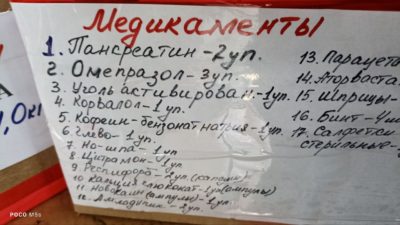 Медикаменты
1. Пансреатин - 2уп.
2. Омепразол - 3уп.
3. Уголь активирован. - 1уп.
4. Корвалол - 1уп.
5. Кофеин-бензонат натрия - 1уп.
6. - 1уп.
7. Но-шпа - 1уп.
8. Цитрамон - 1уп.
9. Респифорб - 2уп (капсулы)
10 Кальция глюконат - 1уп (ампулы)
11. Новокаин (ампулы) - 1уп.
12. Амлодипин - 2уп.
13. Парацето
14. Аторваста
15. Шприцы -
16. Бинт -
17. Салфетки
стерильные -
POCO M5s